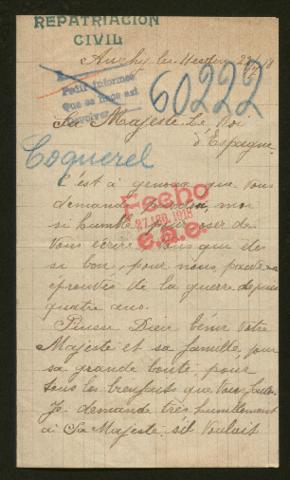 REPATRIACION
CIVIL
Auchy les Hesdin 23/7 18
Pedir informes
Que se haga así
60222
Sa Majesté Le Roi
d'Espagne
Coquerel
C'est à genoux que vous
demande pardon, moi
si humble pour oser de
Vous écrire Vous qui êtes
si bon, pour nous,
éprouvés de la guerre depuis
quatre ans.
Fecho
27 AGO. 1918
Puisse Dieu bénir Votre
Majesté et sa famille, pour
sa grande bonté pour
tous les bienfaits que Vous faites
Je demande très humblement
à Sa Majesté s'il voulait